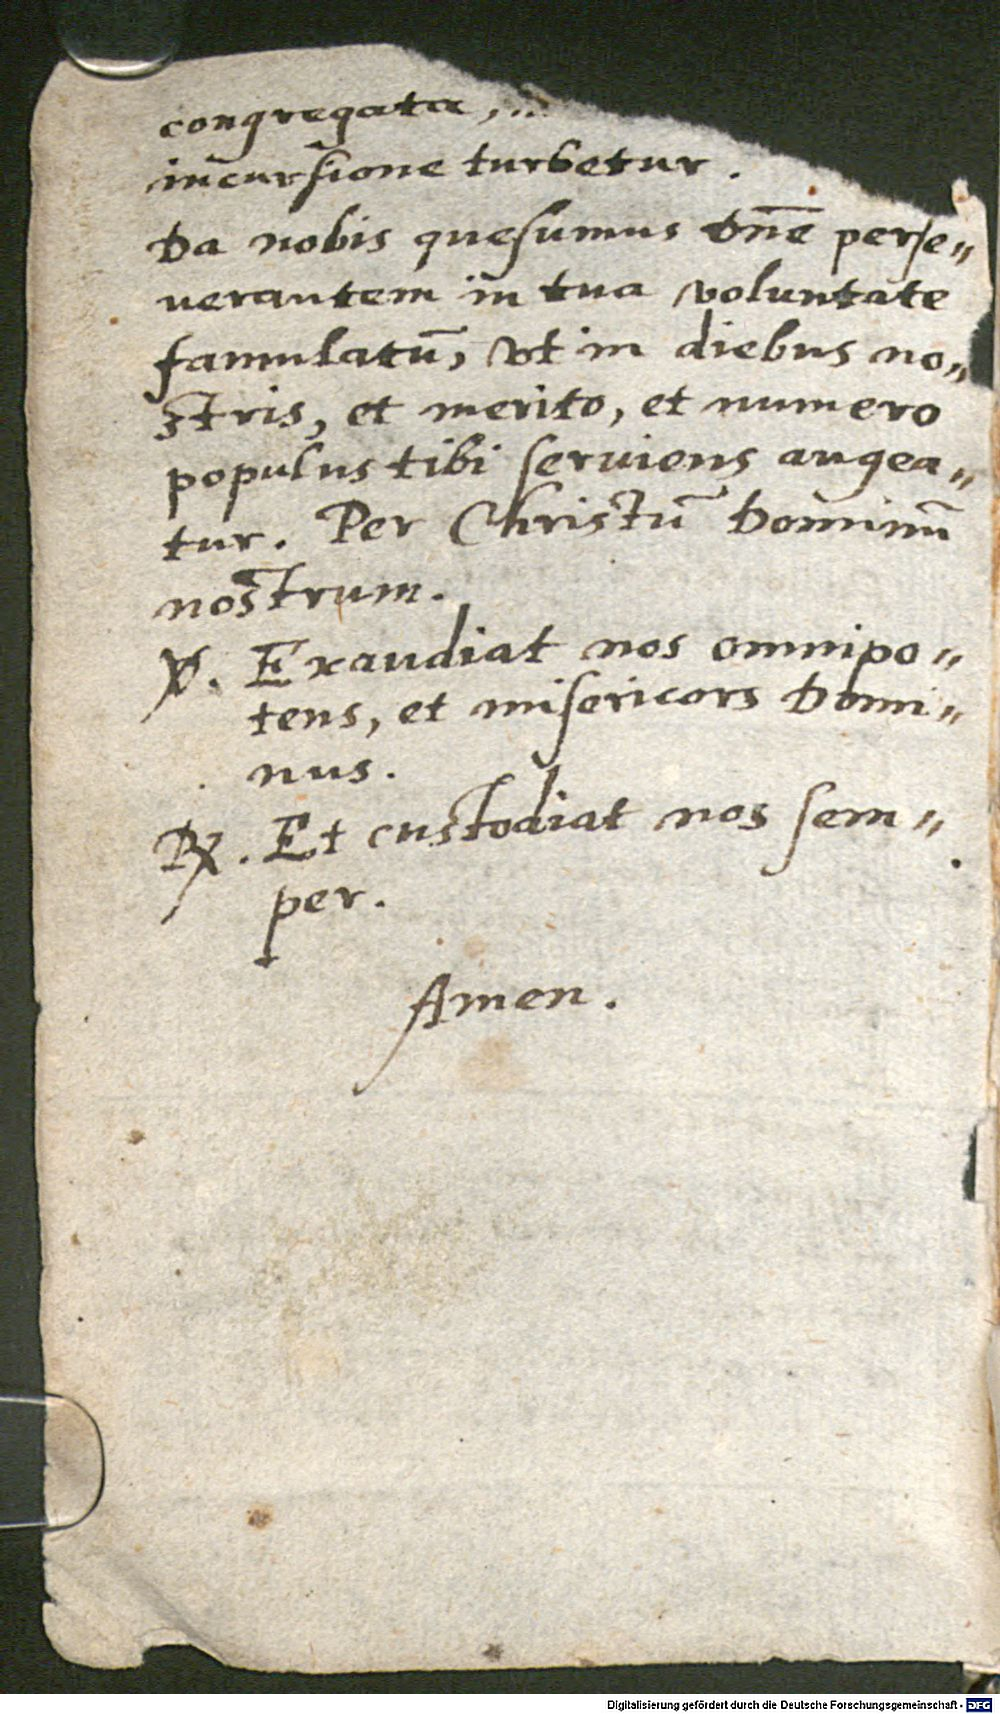 congregata,
incursione turbetur.
Da nobis quesumus Dn̄e perse„
uerantem in tua voluntate
famulatū, vt in diebus no„
stris, et merito, et numero
populus tibi seruiens augea„
tur. Per Christū Dominū
nostrum.
℣. Exaudiat nos omnipo„
tens, et misericors Domi„
nus.
℟. Et custodiat nos sem„
per.
Amen.
Digitalisierung gefördert durch die Deutsche Forschungsgemeinschaft - DFG